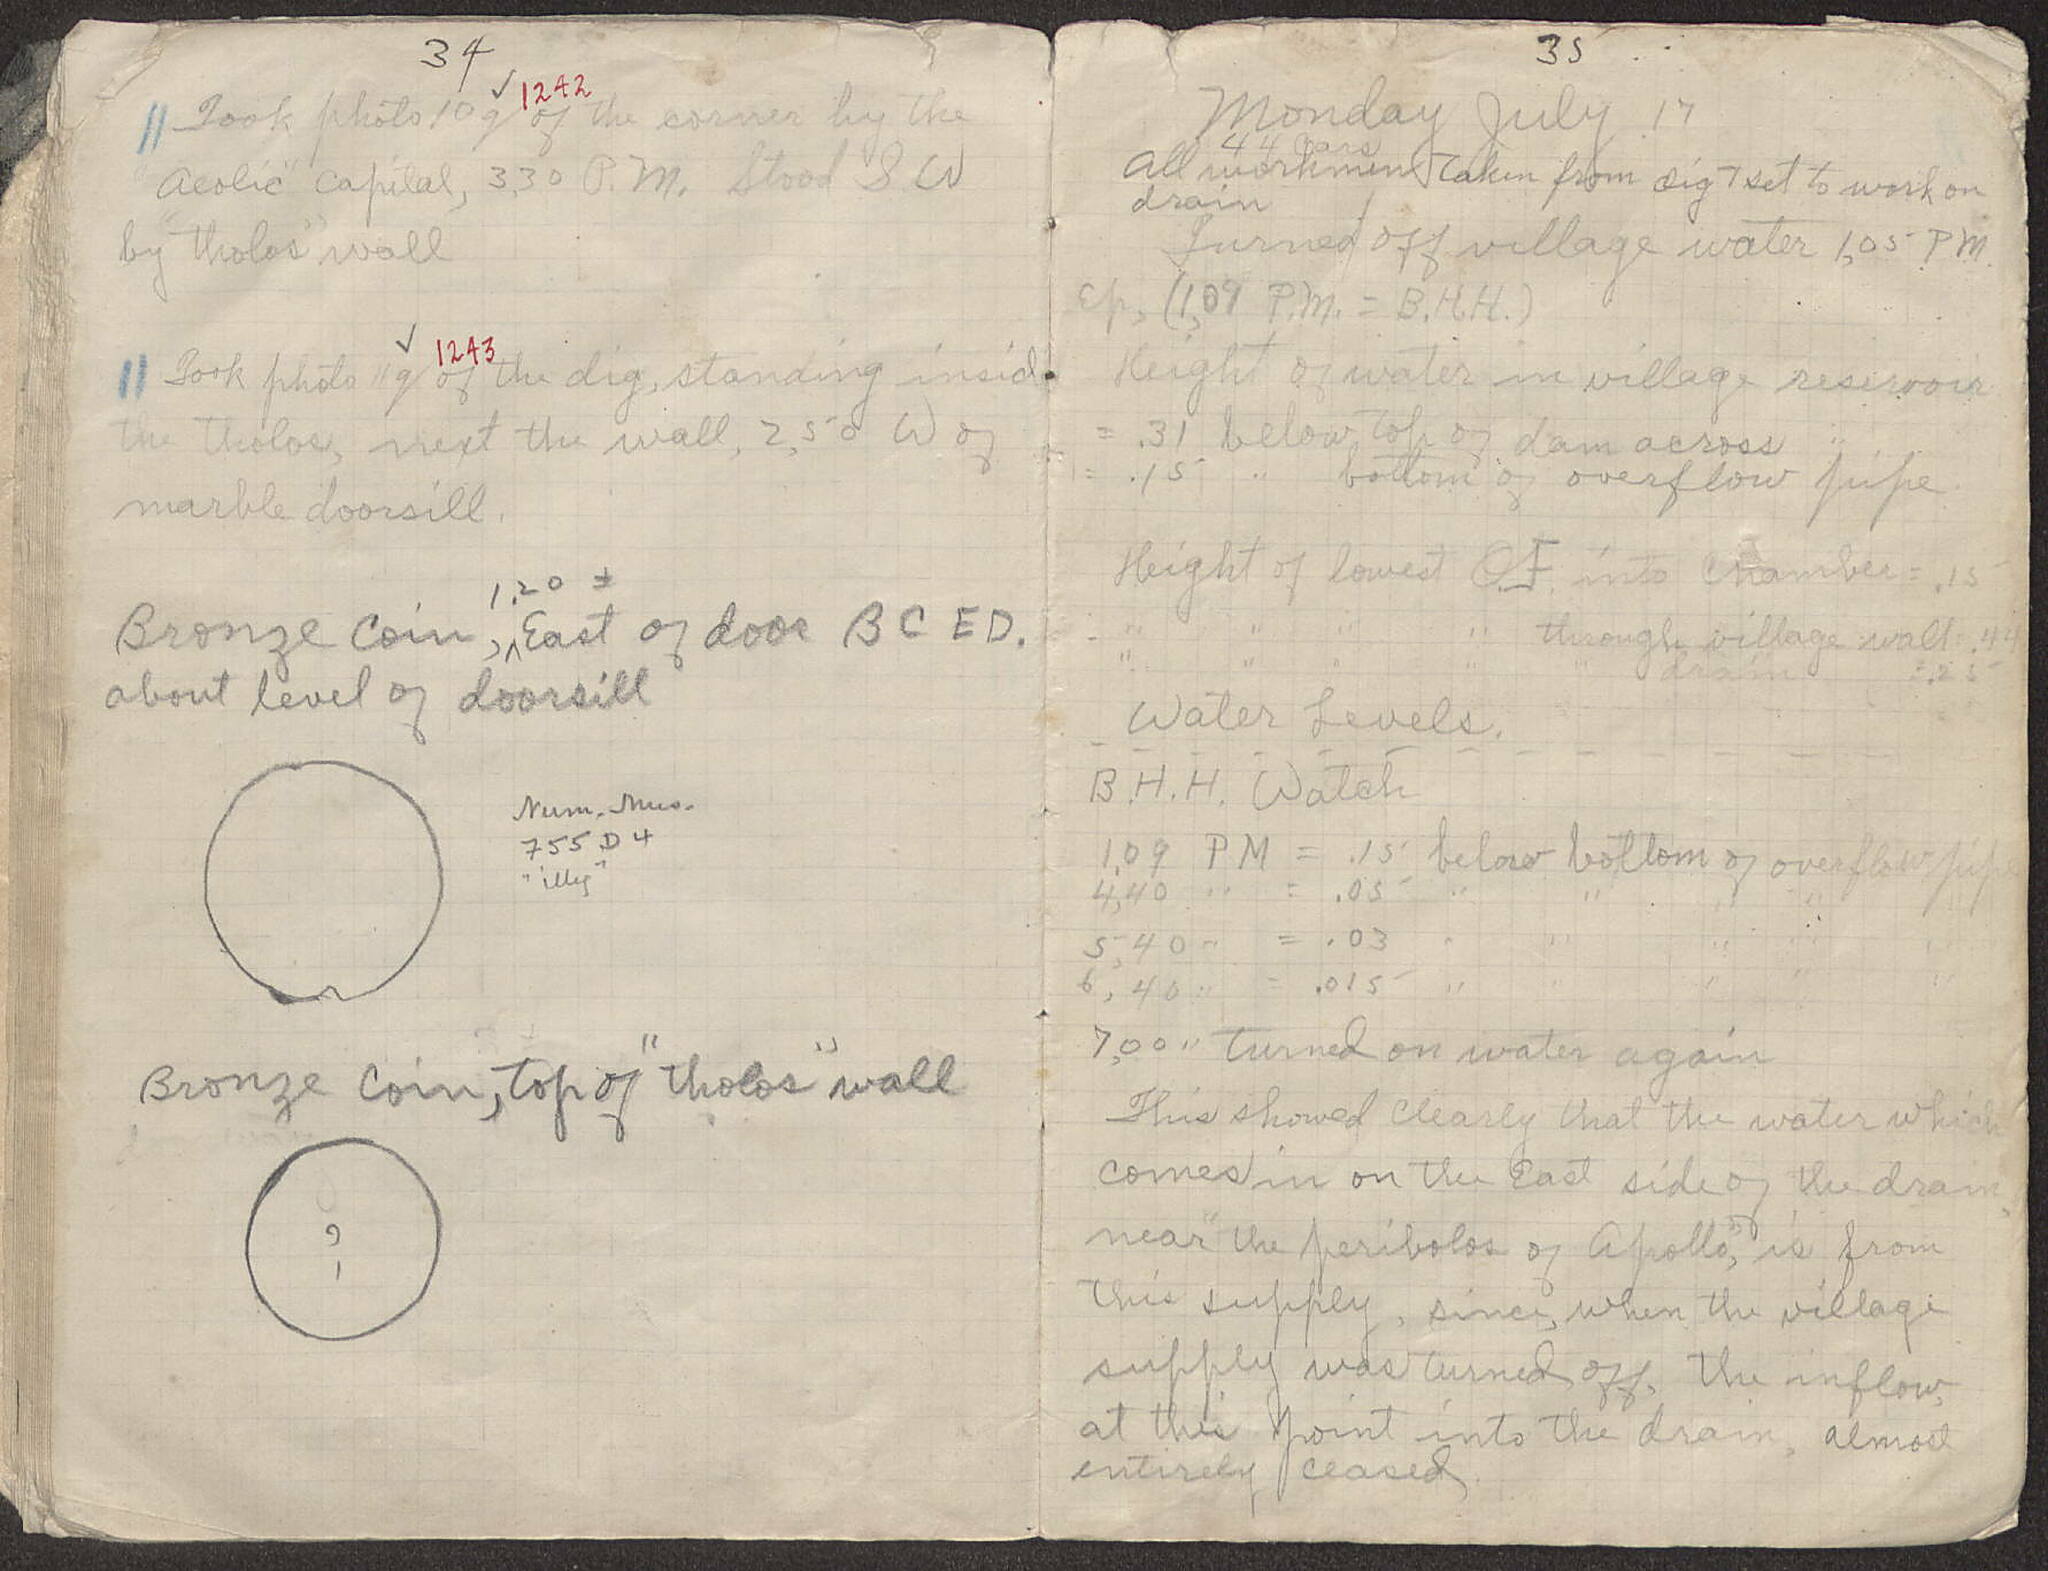 34
Took photo 10 g 1242 of the corner by the
"Aeolic" capital, 3,30 P.M. Stood S W
by "tholos" wall
Took photo 11 g 1243 of the dig, standing inside
the tholos, next the wall, 2,50 W of
marble doorsill.
1.20 ±
Bronze Coin, East of door B C E D.
about level of doorsill
Num. Mus.
755 D 4
"illeg"
Bronze Coin, top of "tholos" wall
?
35
Monday July 17
44 cars
All workmen taken from dig & set to work on
drain
Turned off village water 1,05 P M.
Cp, (1,09 P.M. = B.H.H.)
Height of water in village reservoir
= .31 below top of dam across "
= .15 " bottom of overflow pipe.
Height of lowest O.F. into chamber = .15
" " " " through village wall = .44
" " " " " drain = .25
Water Levels.
B.H.H. Watch
1,09 PM = .15 below bottom of overflow pipe
4,40 " = .05 " " " " "
5,40 " = .03 " " " " "
6,40 " = .015 " " " " "
7,00 " turned on water again
This showed clearly that the water which
comes in on the East side of the drain,
near "the peribolos of Apollo", is from
this supply, since, when the village
supply was turned off, the inflow,
at this point into the drain, almost
entirely ceased.